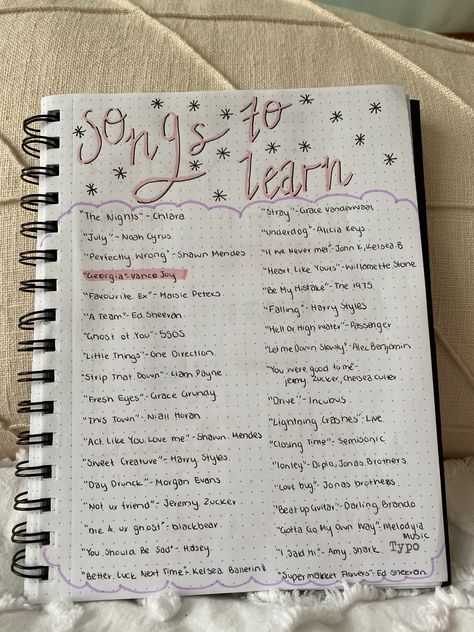 Songs to
learn
"The Nights" - Chiara
"July" - Noah Cyrus.
"Perfectly Wrong" - Shawn Mendes
"Georgia" - Vance Joy
"Favourite Ex" - Maisie Peters
"A Team" - Ed Sheeran
"Ghost of You" - 5SOS
"Little Things" - One Direction.
"Strip That Down" - Liam Payne.
"Fresh Eyes" - Grace Grundy
"This Town" - Niall Horan
"Act Like You Love me" - Shawn Mendes
"Sweet Creature" - Harry Styles.
"Day Drunck" - Morgan Evans
"Not ur friend" - Jeremy Zucker
"me & ur ghost" - blackbear.
"You Should Be Sad" - Halsey
"Better Luck Next Time" - Kelsea Ballerini
"Stray" - Grace Vanderwaal
"Underdog" - Alicia Keys
"If We Never Met" - John K, Kelsea B.
"Heart Like Yours" - Willamette Stone.
"Be My Mistake" - The 1975
"Falling" - Harry Styles
"Hell Or High Water" - Passenger
"Let me Down Slowly" - Alec Benjamin
"You were good to me" -
Jeremy Zucker, Chelsea Cutler
"Drive" - Incubus.
"Lightning Crashes" - Live.
"Closing Time" - Semisonic
"Lonley" - Diplo, Jonas Brothers.
"Love bug" - Jonas brothers
"Beat up Guitar" - Darling Brando
"Gotta Go My Own Way" - Melodyia
music
"I Said Hi" - Amy Shark.
Typo
"Supermarket Flowers" - Ed Sheeran